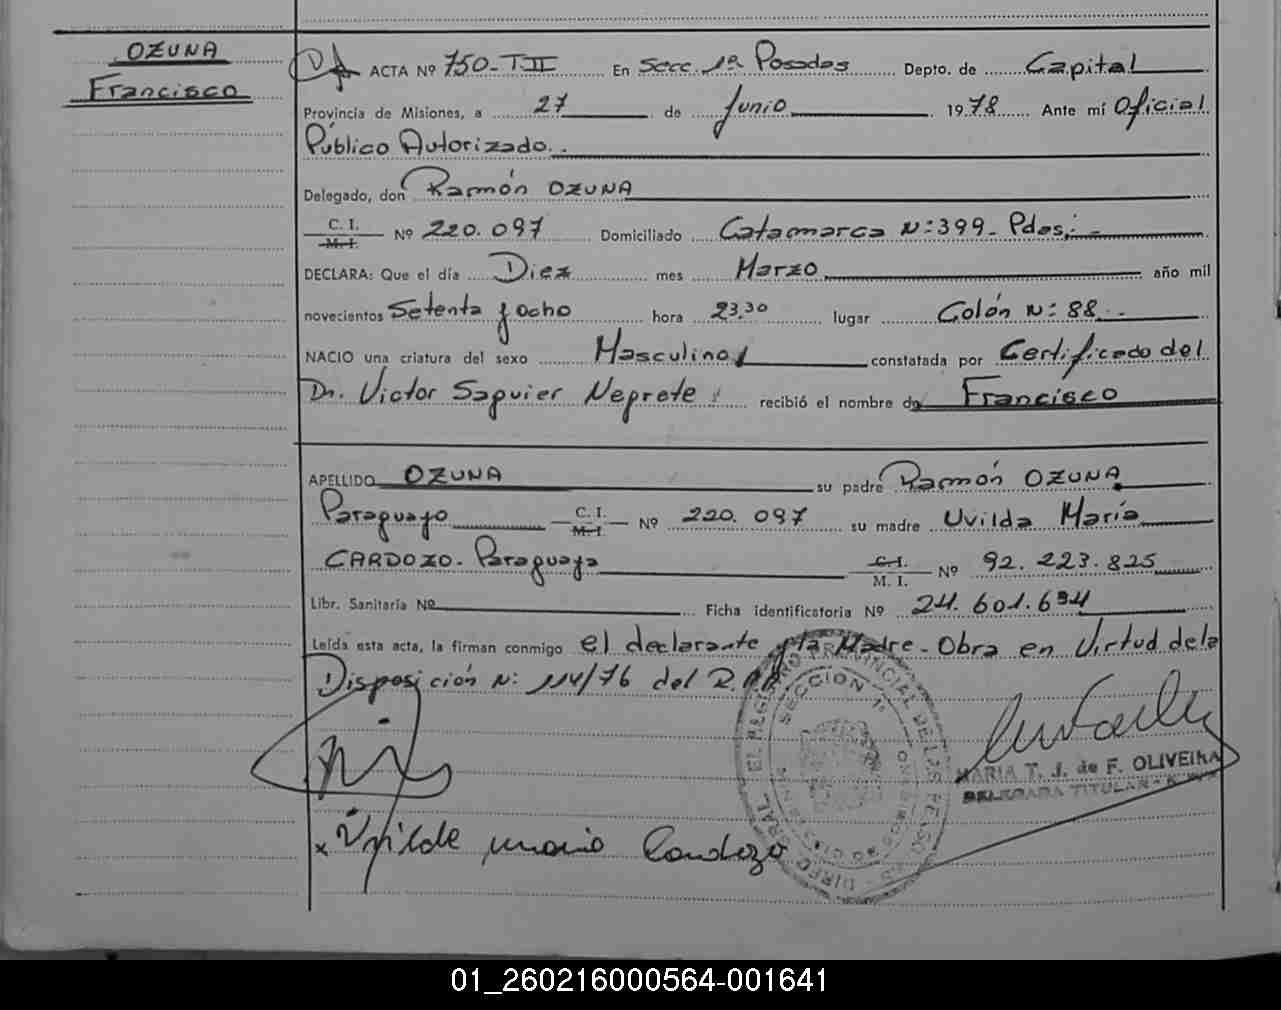 OZUNA
Francisco
ACTA Nº 750-TII En Secc. 1ª Posadas Depto. de Capital
Provincia de Misiones, a 27 de Junio 1978 Ante mí Oficial
Público Autorizado.
Delegado, don Ramón OZUNA
C. I. M. I. Nº 220.097 Domiciliado Catamarca N: 399- Pdas,-
DECLARA: Que el día Diez mes Marzo año mil
novecientos Setenta y ocho hora 23,30 lugar Colón N: 88.
NACIO una criatura del sexo Masculino constatada por Certificado del
Dr. Victor Saguier Negrete recibió el nombre de Francisco
APELLIDO OZUNA su padre Ramón OZUNA
Paraguayo C. I. M. I Nº 220.097 su madre Uvilda María
CARDOZO. Paraguaya C. I. M. I. Nº 92.223.825
Libr. Sanitaria Nº Ficha identificatoria Nº 24.601.694
Leída esta acta, la firman conmigo el declarante y la Madre- Obra en Virtud de la
Disposición N: 114/76 del R.PP.
MARIA T. J. de F. OLIVEIRA
DELEGADA TITULAR
x Uvilde maria Cardozo
SECCION 1ª
01_260216000564-001641